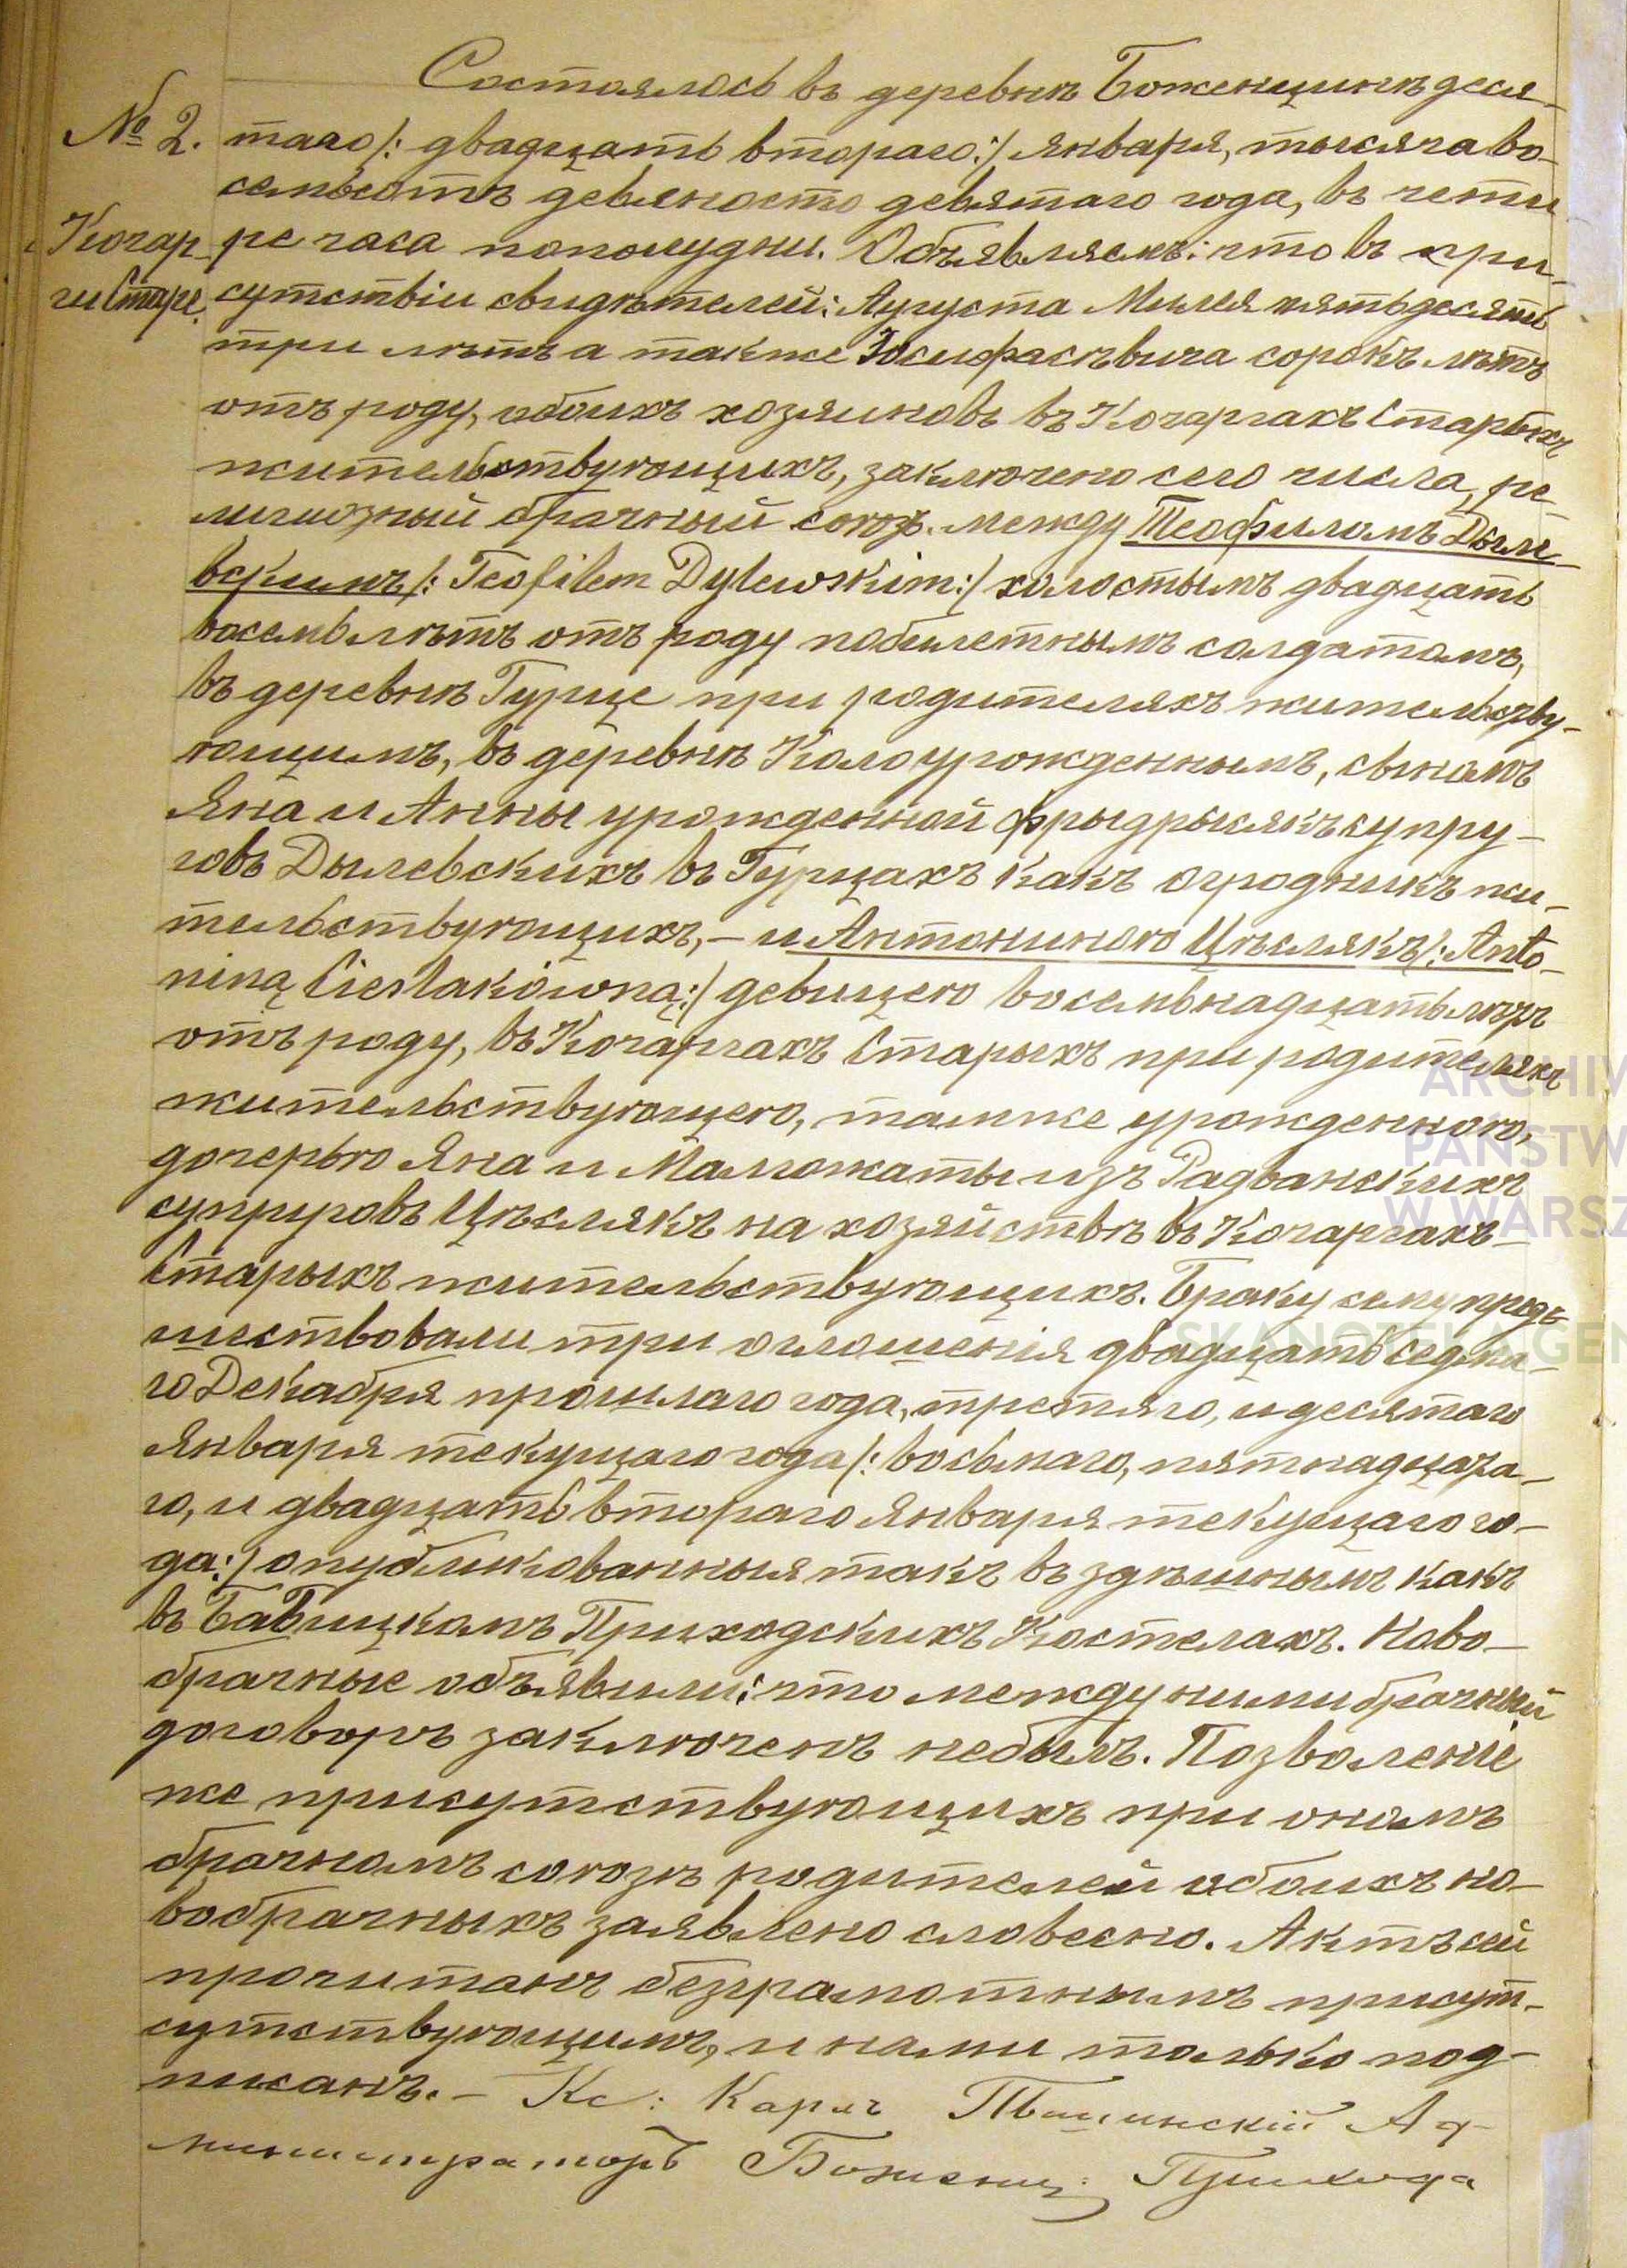 Состоялось въ деревнѣ Боженцинѣ деся-
№ 2. таго /: двадцать втораго :/ Января, тысяча во-
семьсотъ девяносто девятаго года, въ четы
Кочар- ре часа пополудни. Объявляемъ: что въ при-
ги Старе. сутствіи свидѣтелей: Аугуста Милея пятьдесять
три лѣтъ а также сорокъ лѣтъ
отъ роду, обоихъ хозяиновъ въ Кочаргахъ Старыхъ
жительствующихъ, заключено сего числа, ре-
лигіозный брачный союзъ между Теофиломъ Дыле-
вскимъ /: Teofilem Dylewskim :/ холостымъ двадцать
восемь лѣтъ отъ роду побилетнымъ солдатомъ,
въ деревнѣ Гурце при родителяхъ жительству-
ющимъ, въ деревнѣ Коло урожденнымъ, сыномъ
Яна и Анны урожденной Фрыдрысякъ супру-
говъ Дылевскихъ въ Гурцахъ какъ огродникъ жи-
тельствующихъ, - и Антониною Цѣслякъ /: Anto-
niną Cieślakówną :/ девицею восемьнадцать лѣтъ
отъ роду, въ Кочаргахъ Старыхъ при родителяхъ
жительствующею, тамже урожденною,
дочерью Яна и Малгожаты изъ Радванскихъ
супруговъ Цѣслякъ на хозяйствѣ въ Кочаргахъ-
Старыхъ жительствующихъ. Браку сему пред-
шествовали три оглошенія двадцать седьма-
го Декабря прошлаго года, третяго, и десятаго
Января текущаго года /: восьмаго, пятнадцата-
го, и двадцать втораго Января текущаго го-
да :/ опубликованныя такъ въ здѣшнымъ какъ
въ Бабицкомъ Приходскихъ Костелахъ. Ново-
брачные объявили: что между ними брачный
договоръ заключенъ небылъ. Позволеніе
же присутствующихъ при ономъ
брачномъ союзѣ родителей обоихъ но-
вобрачныхъ заявлено словесно. Актъ сей
прочитанъ безграмотнымъ присут-
сутствующимъ, и нами только под-
писанъ. - Кс: Кароль Ад-
министраторъ Боженц: Прихода
ARCHIW
PAŃSTW
W WARSZ
SKANOTEKAGEN